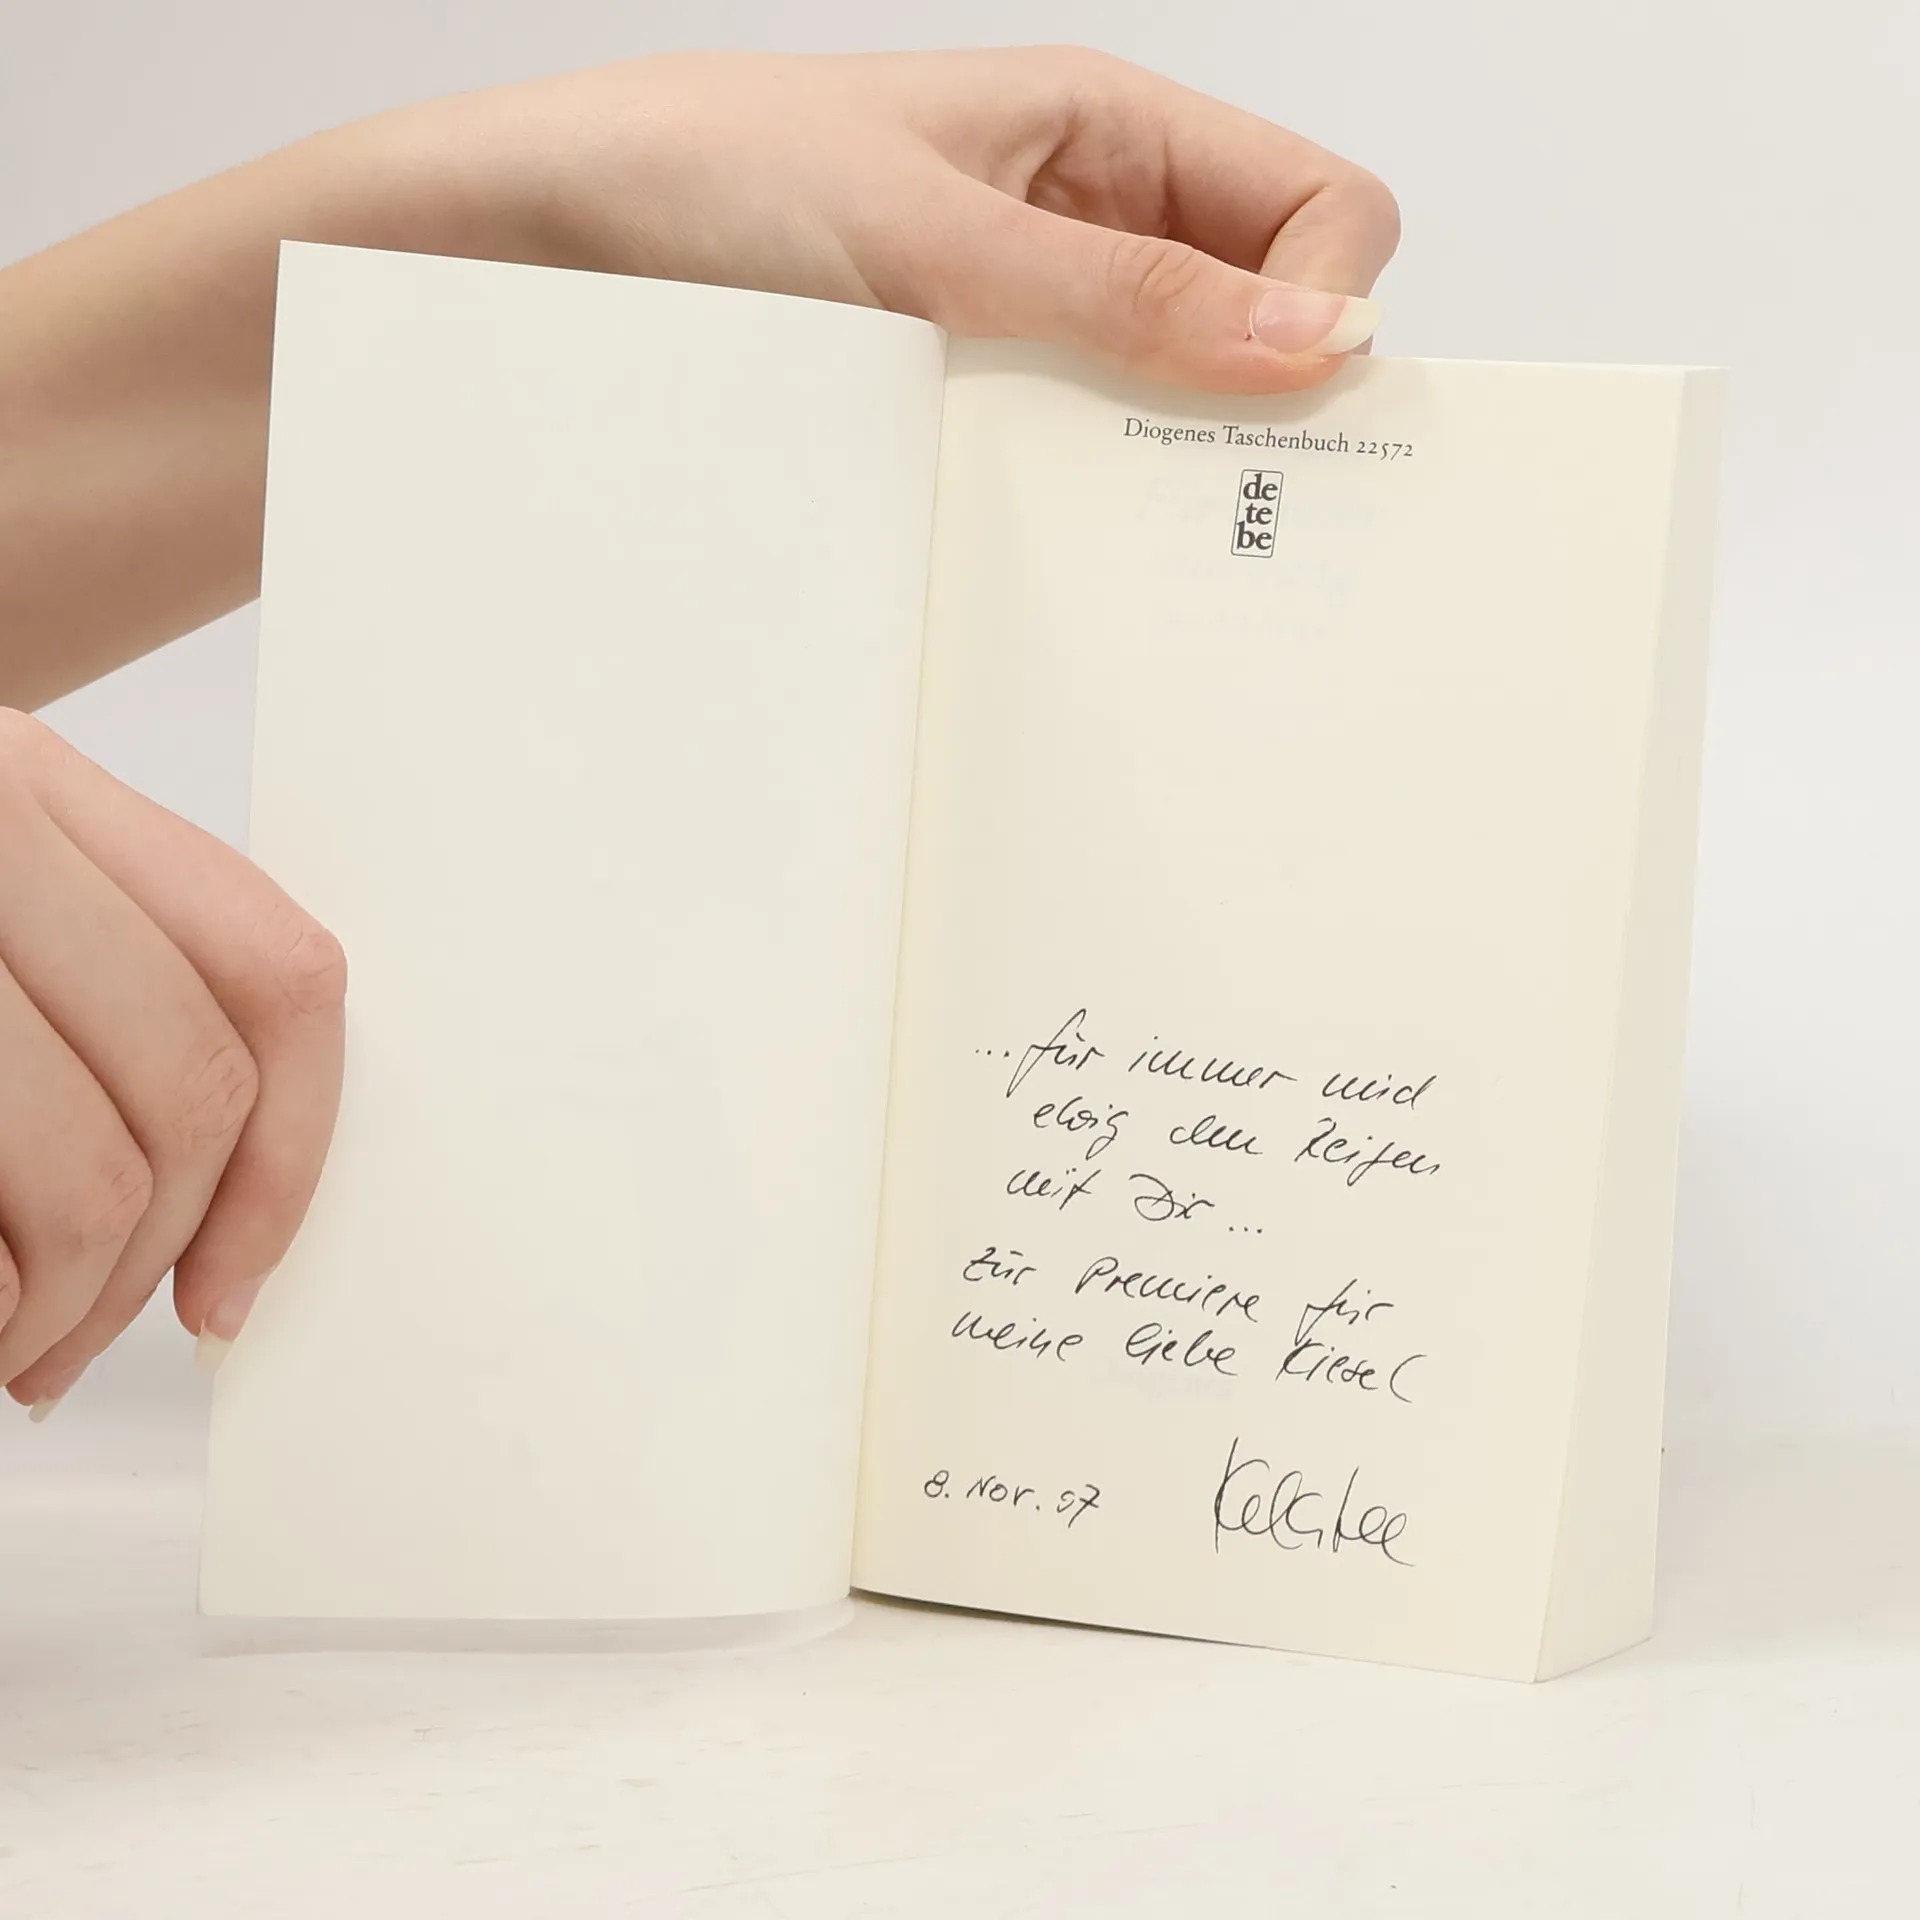 Diogenes Taschenbuch 22572
de
te
be
... für immer und
ewig den Reigen
mit Dir ...
Zur Premiere für
meine liebe Kiesel
8. Nov. 97